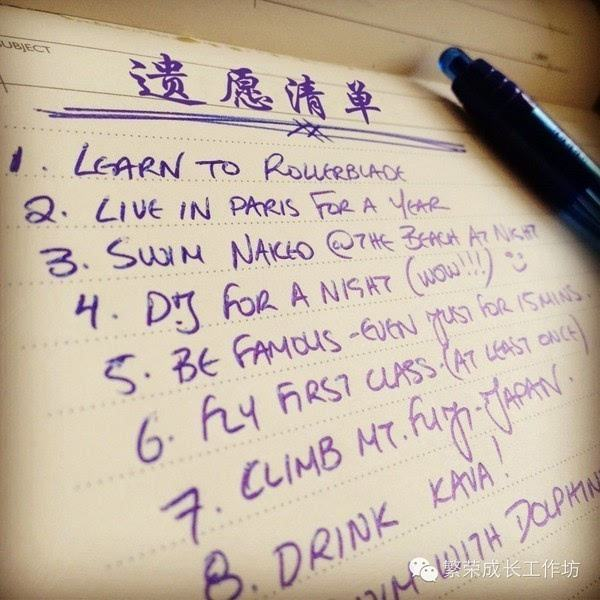 SUBJECT
遗愿清单
1. LEARN TO ROLLERBLADE
2. LIVE IN PARIS FOR A YEAR
3. SWIM NAKED @THE BEACH AT NIGHT
4. DJ FOR A NIGHT (WOW!!!)
5. BE FAMOUS-EVEN JUST FOR 15 MINS.
6. FLY FIRST CLASS.(AT LEAST ONCE)
7. CLIMB MT. FUJI-JAPAN.
8. DRINK KAVA!
SWIM WITH DOLPHIN
繁荣成长工作坊